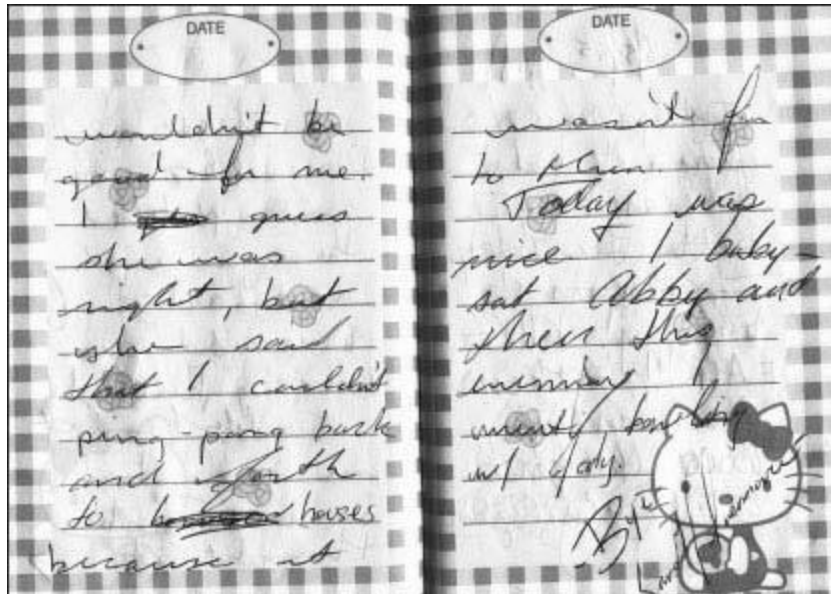 DATE
wouldn't be
good for me.
I guess
she was
right, but
she said
that I couldn't
ping-pong back
and forth
to houses
because it
DATE
wasn't fair
to them.
Today was
nice I baby-
sat Abby and
then this
evening I
went bowling
w/ Jody.
Bye